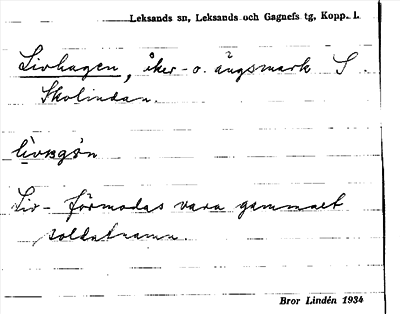 Leksands sn, Leksands och Gagnefs tg, Kopp. l.
Livhagen, åker- o. ängsmark S.
Skolindan.
Liv- förmodas vara gammalt
soldatnamn
Bror Lindén 1934